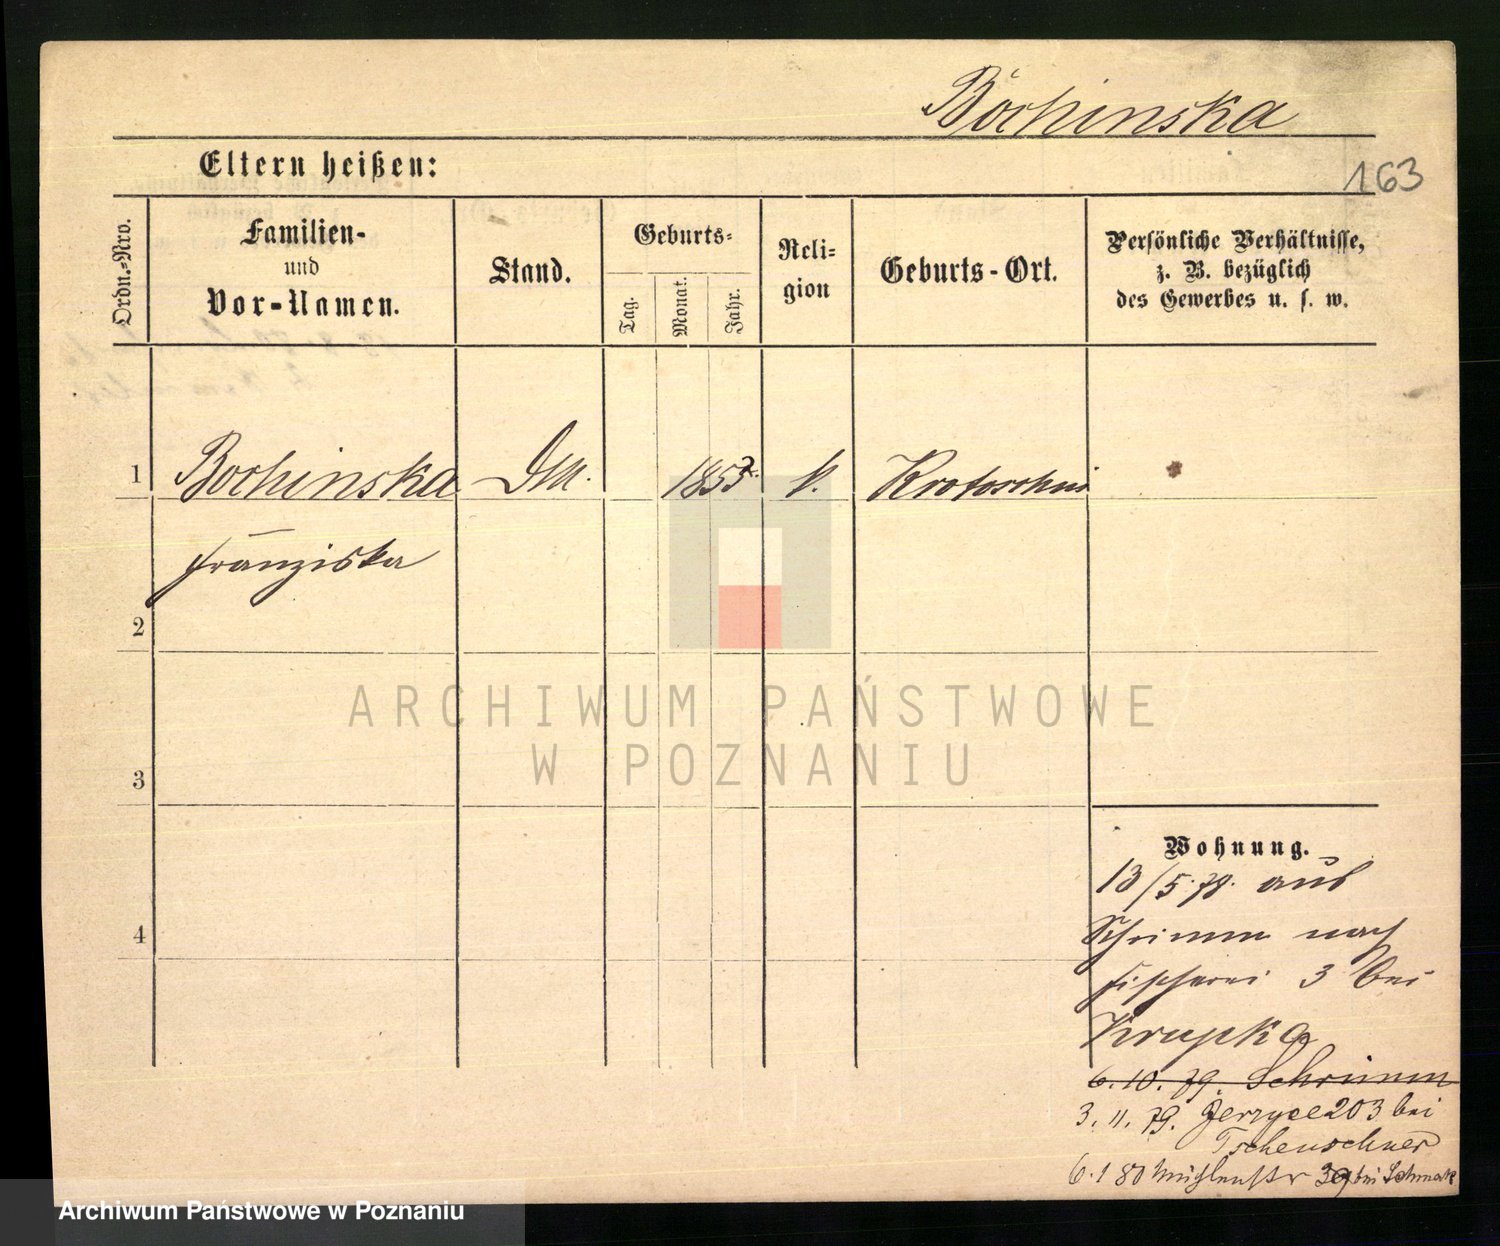 Bochinska
Eltern heißen:
163
Ordn.-Nro.
Familien-
und
Vor-Namen.
Stand.
Geburts-
Tag.
Monat.
Jahr.
Reli-
gion
Geburts-Ort.
Persönliche Verhältnisse,
z. B. bezüglich
des Gewerbes u. s. w.
1
Bochinska
DM.
1853
k.
Krotoschin
Franziska
2
ARCHIWUM PAŃSTWOWE
W POZNANIU
3
Wohnung.
13/5.79. aus
4
Schrimm nach
Fischerei 3 bei
Krupka
6.10.79. Schrimm
3.11.79. 203 bei
Tscheuschner
6.1 80 Mühlenstr bei
Archiwum Państwowe w Poznaniu